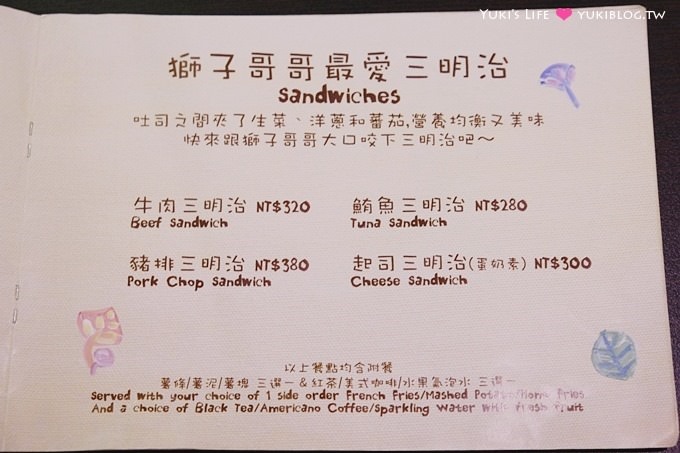 YUKI'S LIFE ❤ YUKIBLOG.TW
獅子哥哥最愛三明治
Sandwiches
吐司之間夾了生菜、洋蔥和蕃茄,營養均衡又美味
快來跟獅子哥哥大口咬下三明治吧～
牛肉三明治 NT$320
Beef Sandwich
鮪魚三明治 NT$280
Tuna Sandwich
豬排三明治 NT$380
Pork Chop Sandwich
起司三明治(蛋奶素) NT$300
Cheese Sandwich
以上餐點均含附餐
薯條/薯泥/薯塊 三選一 & 紅茶/美式咖啡/水果氣泡水 三選一
Served with your choice of 1 side order French Fries/Mashed Potato/Home fries
And a choice of Black Tea/Americano Coffee/Sparkling Water with fresh fruit